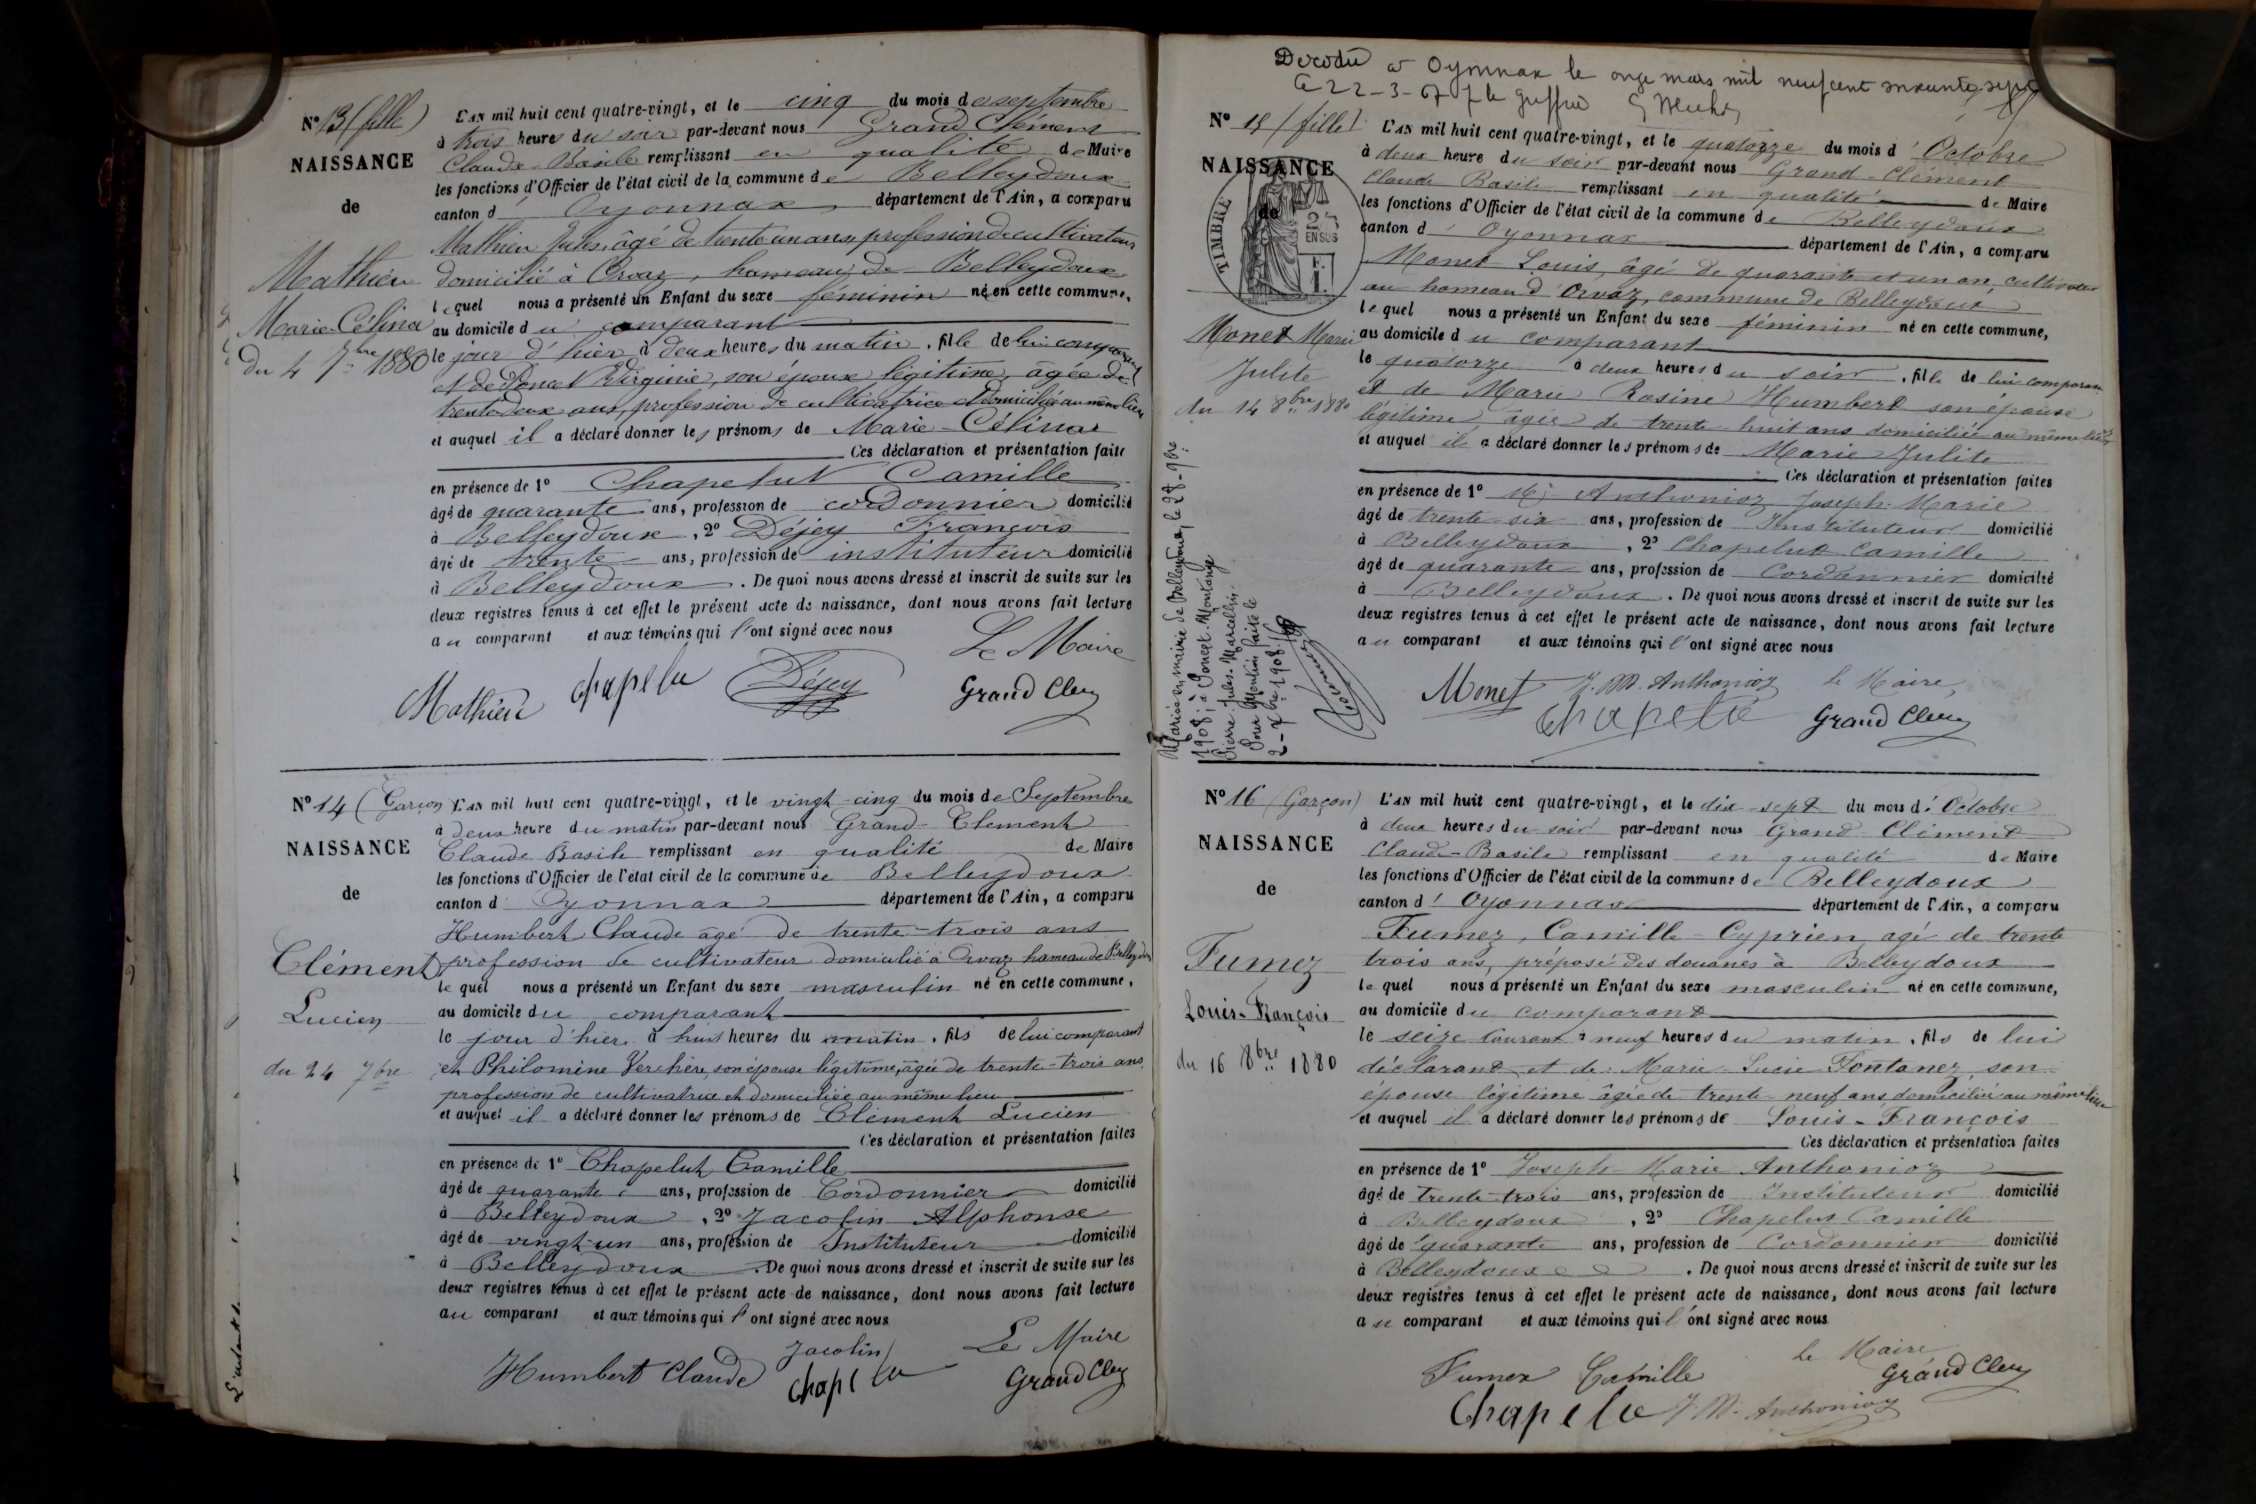 N° 13 (fille)
NAISSANCE
de
Mathieu
Marie-Célina
du 4 7bre 1880
L'AN mil huit cent quatre-vingt, et le cinq du mois de septembre
à trois heures du soir par-devant nous Grand Clément
Claude Basile remplissant en qualité de Maire
les fonctions d'Officier de l'état civil de la commune de Belleydoux
canton d'Oyonnax département de l'Ain, a comparu
Mathieu Jules, âgé de trente un ans, profession de cultivateur
domicilié à Orvaz, hameau de Belleydoux
lequel nous a présenté un Enfant du sexe féminin né en cette commune,
au domicile du comparant
le jour d'hier à deux heures du matin, fille de lui comparant
et de Poncet Virginie, son épouse légitime, âgée de
trente deux ans, profession de cultivatrice et domiciliée au même lieu
et auquel il a déclaré donner les prénoms de Marie-Célina
Ces déclaration et présentation faites
en présence de 1° Chapelut Camille
âgé de quarante ans, profession de cordonnier domicilié
à Belleydoux, 2° Déjey François
âgé de trente ans, profession de instituteur domicilié
à Belleydoux. De quoi nous avons dressé et inscrit de suite sur les
deux registres tenus à cet effet le présent acte de naissance, dont nous avons fait lecture
au comparant et aux témoins qui l'ont signé avec nous
Le Maire
Mathieu Chapelu Déjey Grand Clem
N° 14 (Garçon)
NAISSANCE
de
Clément
Lucien
du 24 7bre
L'AN mil huit cent quatre-vingt, et le vingt-cinq du mois de Septembre
à deux heure du matin par-devant nous Grand-Clement
Claude Basile remplissant en qualité de Maire
les fonctions d'Officier de l'état civil de la commune de Belleydoux
canton d'Oyonnax département de l'Ain, a comparu
Humbert Claude âgé de trente-trois ans
profession de cultivateur domicilié à Orvaz hameau de Belleydoux
lequel nous a présenté un Enfant du sexe masculin né en cette commune,
au domicile du comparant
le jour d'hier à huit heures du matin, fils de lui comparant
et Philomine Verchère, son épouse légitime, âgée de trente-trois ans,
profession de cultivatrice et domiciliée au même lieu
et auquel il a déclaré donner les prénoms de Clément Lucien
Ces déclaration et présentation faites
en présence de 1° Chapelut Camille
âgé de quarante ans, profession de Cordonnier domicilié
à Belleydoux, 2° Jacolin Alphonse
âgé de vingt-un ans, profession de Instituteur domicilié
à Belleydoux. De quoi nous avons dressé et inscrit de suite sur les
deux registres tenus à cet effet le présent acte de naissance, dont nous avons fait lecture
au comparant et aux témoins qui l'ont signé avec nous
Jacolin Le Maire
Humbert Claude Chapelu Grand Clem
Decédée à Oyonnax le onze mars mil neuf cent soixante sept
Le 22-3-67 Le Greffier
N° 15 (fille)
NAISSANCE
de
TIMBRE
Monet Marie
Julite
du 14 8bre 1880
Mariée en mairie de Belleydoux, le 28-9bre
1908; à Poncet-Montange
Pierre-Jules-Marcellin.
Pour Mention faite le
2-Xbre 1908.
L'AN mil huit cent quatre-vingt, et le quatorze du mois d'Octobre
à deux heure du soir par-devant nous Grand-Clément
Claude Basile remplissant en qualité de Maire
les fonctions d'Officier de l'état civil de la commune de Belleydoux
canton d'Oyonnax département de l'Ain, a comparu
Monet Louis, âgé de quarante et un an, cultivateur
au hameau d'Orvaz, commune de Belleydoux
lequel nous a présenté un Enfant du sexe féminin né en cette commune,
au domicile du comparant
le quatorze à deux heures du soir, fille de lui comparant
et de Marie Rosine Humbert son épouse
légitime âgée de trente-huit ans domiciliée au même lieu
et auquel il a déclaré donner les prénoms de Marie Julite
Ces déclaration et présentation faites
en présence de 1° Mr Anthonioz Joseph-Marie
âgé de trente-six ans, profession de Instituteur domicilié
à Belleydoux, 2° Chapelut Camille
âgé de quarante ans, profession de Cordonnier domicilié
à Belleydoux. De quoi nous avons dressé et inscrit de suite sur les
deux registres tenus à cet effet le présent acte de naissance, dont nous avons fait lecture
au comparant et aux témoins qui l'ont signé avec nous
Monet J. M. Anthonioz le Maire,
Chapelu Grand Clem
N° 16 (Garçon)
NAISSANCE
de
Fumez
Louis-François
du 16 8bre 1880
L'AN mil huit cent quatre-vingt, et le dix-sept du mois d'Octobre
à deux heures du soir par-devant nous Grand Clément
Claude-Basile remplissant en qualité de Maire
les fonctions d'Officier de l'état civil de la commune de Belleydoux
canton d'Oyonnax département de l'Ain, a comparu
Fumez, Camille-Cyprien, agé de trente
trois ans, préposé des douanes à Belleydoux
lequel nous a présenté un Enfant du sexe masculin né en cette commune,
au domicile du comparant
le seize courant à neuf heures du matin, fils de lui
déclarant et de Marie-Lucie Fontanez son
épouse légitime âgée de trente-neuf ans domiciliée au même lieu
et auquel il a déclaré donner les prénoms de Louis-François
Ces déclaration et présentation faites
en présence de 1° Joseph-Marie Anthonioz
âgé de trente-trois ans, profession de Instituteur domicilié
à Belleydoux, 2° Chapelut Camille
âgé de quarante ans, profession de Cordonnier domicilié
à Belleydoux. De quoi nous avons dressé et inscrit de suite sur les
deux registres tenus à cet effet le présent acte de naissance, dont nous avons fait lecture
au comparant et aux témoins qui l'ont signé avec nous
Le Maire
Fumez Camille Grand Clem
Chapelu J. M. Anthonioz